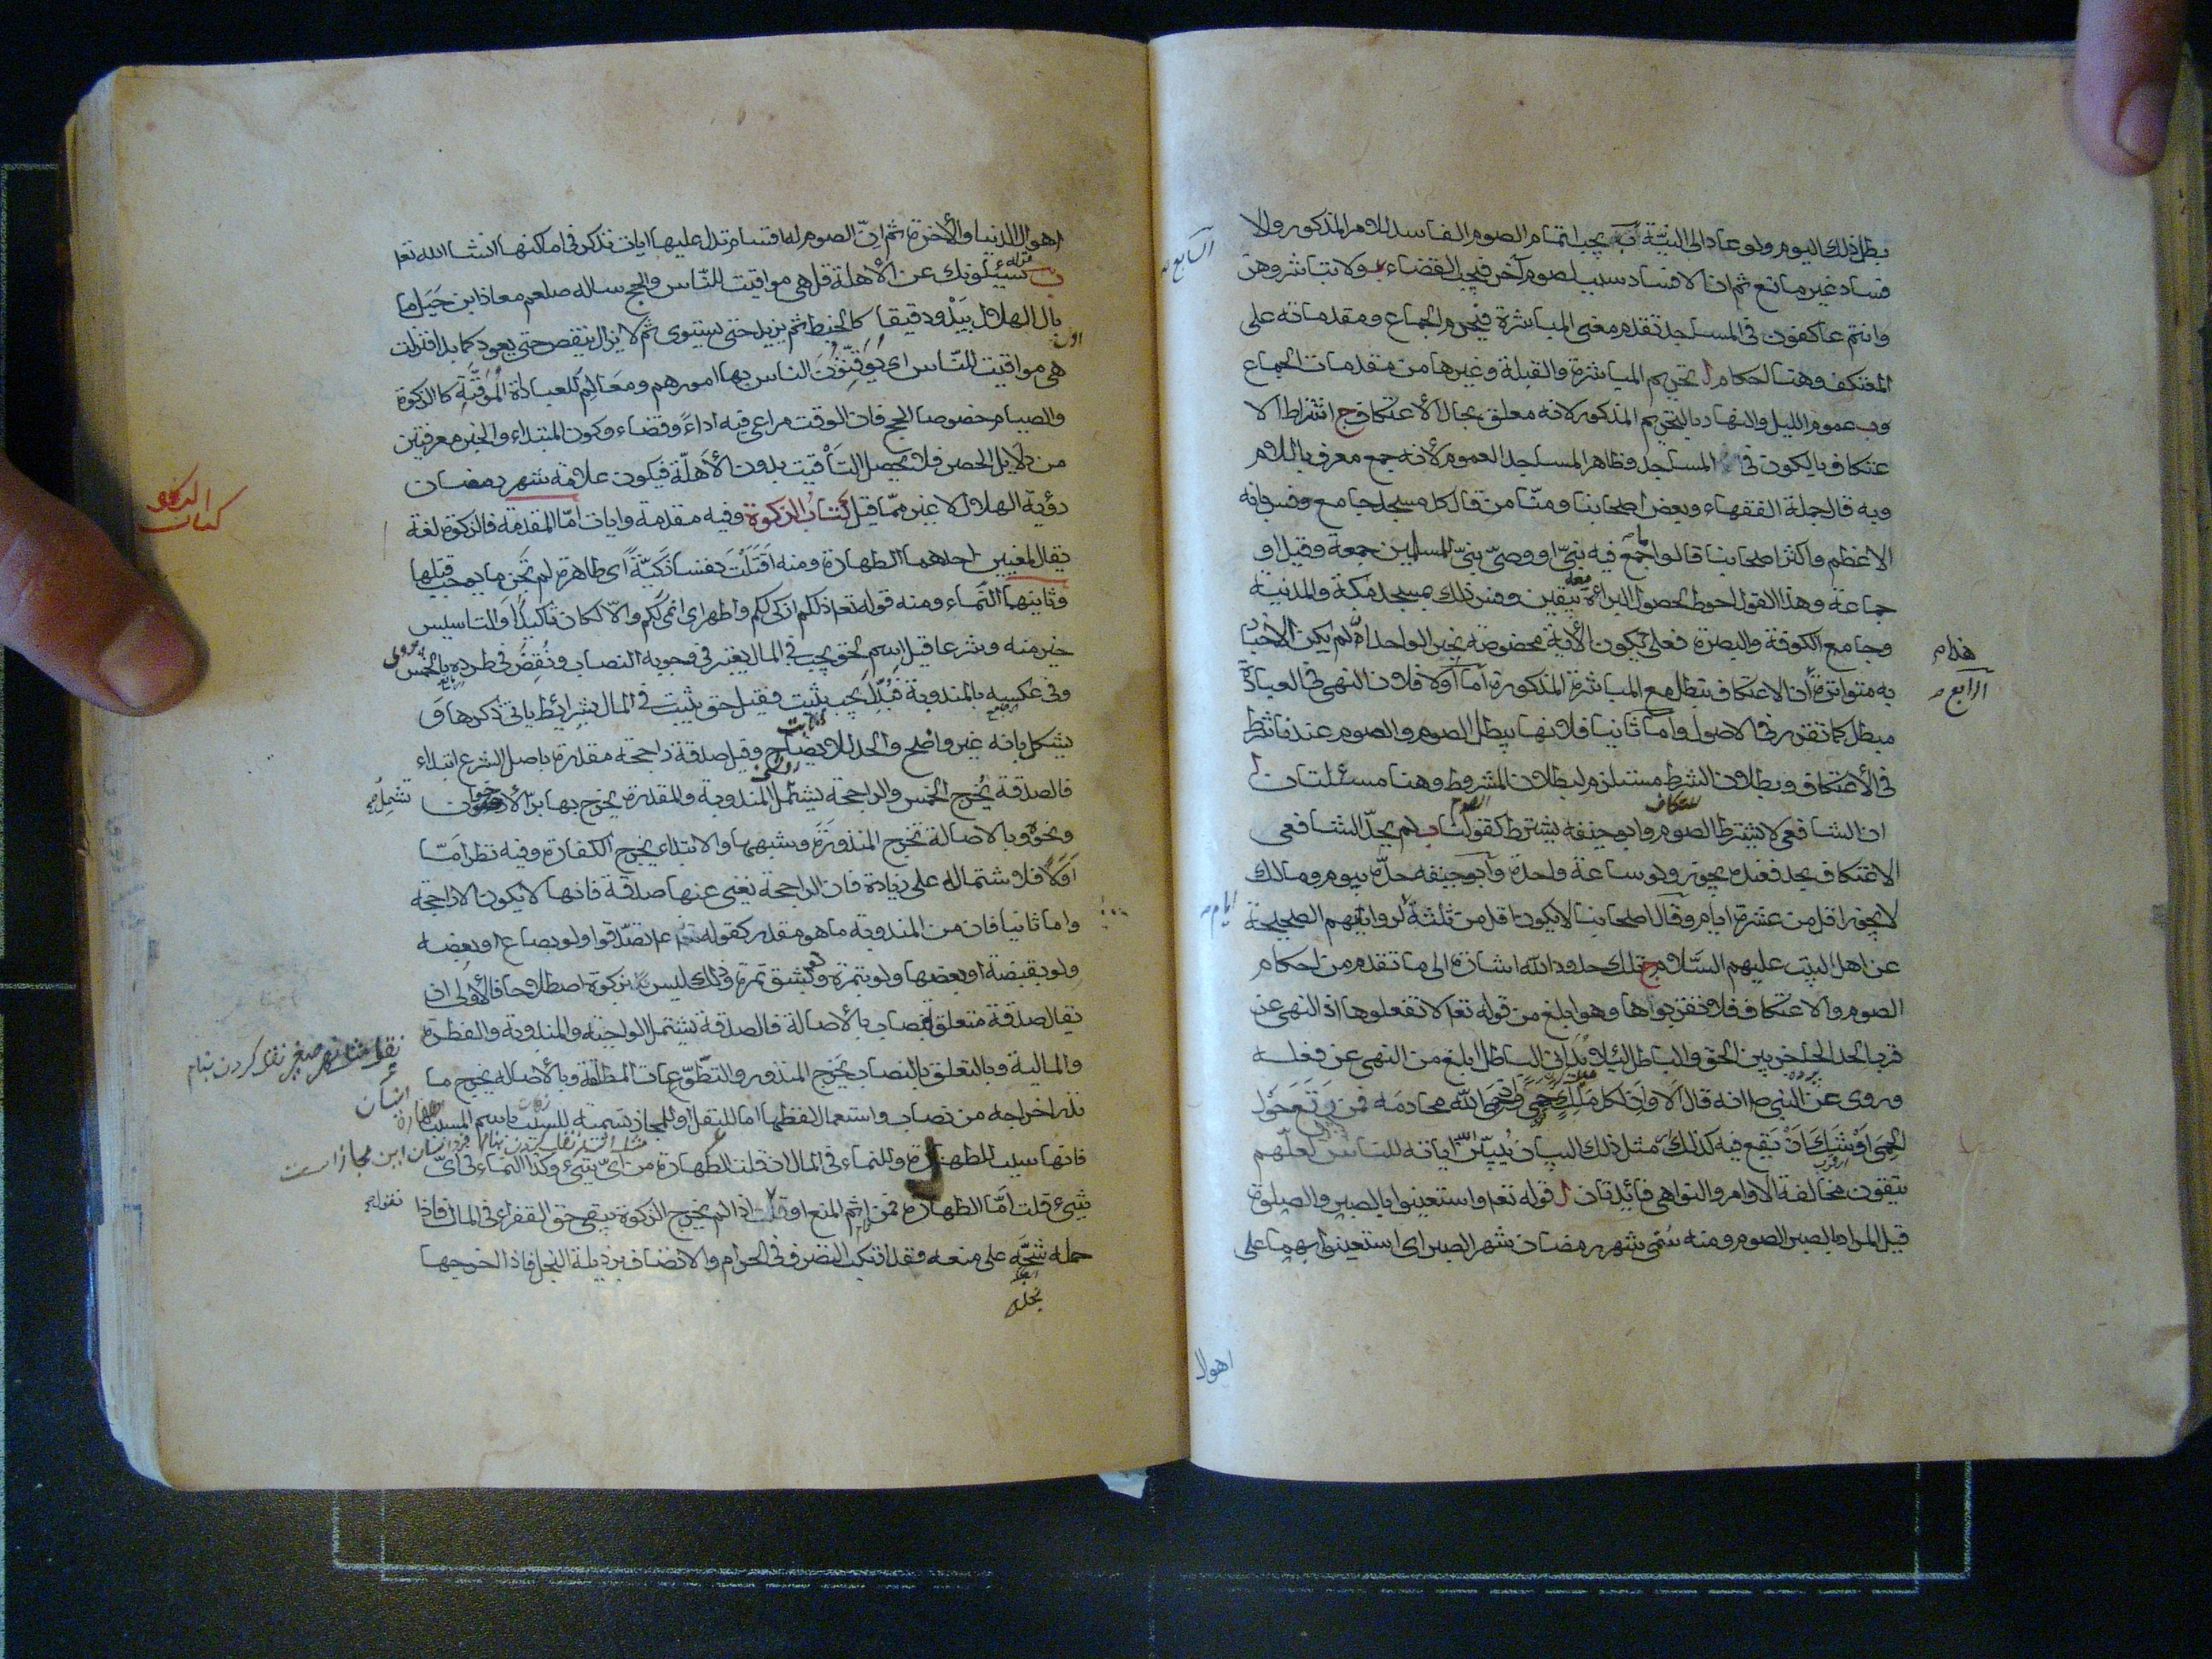 بطل ذلك اليوم ولو عاد الى النيّة ب يجب اتمام الصوم الفاسد للامر المذكور ولا
فساد غير مانع ثم ان الافساد سبب لصوم آخر فيجب القضاء ولا تباشروهن
وانتم عاكفون فى المساجد تقدم معنى المباشرة فيحرم الجماع ومقدماته على
المعتكف وهنا احكام ا تحريم المباشرة والقبلة وغيرها من مقدمات الجماع
وب عموم الليل والنهار بالتحريم المذكور لانه معلق بحال الاعتكاف ج اشتراط الا
عتكاف بالكون فى المساجد وظاهر المساجد العموم لأنه جمع معرف باللام
وبه قال جملة الفقهاء وبعض اصحابنا ومنّا من قال كل مسجد جامع وفسر بانه
الاعظم واكثر اصحابنا قالوا ما جمع فيه نبىّ او وصىّ نبىّ للمسلمين جمعة وقيل او
جماعة وهذا القول احوط لحصول البراءة معه بيقين وفسر ذلك بمسجد مكة والمدينة
وجامع الكوفة والبصرة فعلى يكون الأية مخصوصة بخبر الواحد ان لم يكن الاخبار
هذا م
به متواترة أن الاعتكاف يبطل مع المباشرة المذكورة اما اولا فلان النهى فى العبادة
الرابع
مبطل كما تقرر فى الاصول واما ثانيا فلانها يبطل الصوم والصوم عندنا شرط
فى الأعتكاف وبطلان الشرط مستلزم لبطلان المشروط وهنا مسئلتان ا
ان الشافعى لا يشترط الصوم وابو حنيفه يشترط كقولنا ب لم يحدّ الشافعى
الاعتكاف بحد فعنده يجوز ولو ساعة واحدة وابو حنيفه حدّه بيوم ومالك
لا يجوز اقل من عشرة ايام وقال اصحابنا لا يكون اقل من ثلثة لرواياتهم الصحيحة
ايام
عن اهل البيت عليهم السّلام ج تلك حدود الله اشارة الى ما تقدم من احكام
الصوم والاعتكاف فلا تقربواها وهو ابلغ من قوله تعا لا تفعلوها اذ النهى عن
قرب الحد الحاجز بين الحق والباطل لئلا يدانى الباطل ابلغ من النهى عن فعله
وروى عن النبى ص انه قال الا وان لكل ملك حمى وحمى الله محارمه فمن يرتع حول
الحمى اوشك ان يقع فيه كذلك مثل ذلك البيان يبيّن الله اياته للناس لعلّهم
يتقون مخالفة الاوامر والنواهى فائدتان ا قوله تعا واستعينوا بالصبر والصلوة
قيل المراد بالصبر الصوم ومنه سمّى شهر رمضان شهر الصبر اى استعينوا بهما على
اهوال
اهوال الدنيا والأخرة ثم انّ الصوم له اقسام تدل عليها ايات تذكر فى اماكنها انشاء الله تعا
قوله يسئلونك عن الاهلة قل هى مواقيت للنّاس والحج ساله صلعم معاذ ابن جبل ما
بال الهلال يبدو دقيقا كالخيط ثم يزيد حتى يستوى ثم لا يزال ينقص حتى يعود كما بدا فنزلت
هى مواقيت للنّاس اى يوقّتون الناس بها امورهم ومعالم للعبادة الموقّتة كالزكوة
والصيام خصوصا الحج فان الوقت مراعى فيه اداءً وقضاء وكون المبتداء والخبر معرفتين
من دلايل الحصر فلا يحصل التأقيت بدون الأهلّة فيكون علامة شهر رمضان
رؤية الهلال لا غير ممّا قيل كتاب الزكوة وفيه مقدمة وايات امّا المقدمة فالزكوة لغة
كتاب الزكوة
يقال لمعنيين احدهما الطهارة ومنه اقتلت نفسا زكيّة اى طاهرة لم تجن ما يوجب قتلها
وثانيهما النماء ومنه قوله تعا ذلكم ازكى لكم واطهر اى انمى لكم والّا لكان تأكيدا والتاسيس
خير منه وشرعا قيل اسم لحق يجب فى المال يعتبر فى وجوبه النصاب ونقض فى طرده بالخمس
وفى عكسه بالمندوبة فبدّل يجب بثبت فقيل حق يثبت فى المال بشرائط ياتى ذكرها و
يشكل بانه غير واضح والحد للايضاح وقيل صدقة راجحة مقدرة باصل الشرع ابتداء
فالصدقة يخرج الخمس والراجحة يشتمل المندوبة والمقدرة يخرج بها برّ الأخوان
تشمل
ونحوه وبالاصالة تخرج المنذورة وشبهها والابتداء يخرج الكفارة وفيه نظر امّا
اوّلًا فلاشتماله على زيادة فان الراجحة يغنى عنها صدقة فانها لا يكون الا راجحة
واما ثانيا فان من المندوبة ما هو مقدر كقوله عم تصدّقوا ولو بصاع او بعضه
ولو بقبضة او بعضها ولو بتمرة ولو بشق تمرة وذلك ليس بزكوة اصطلاحا فالأولى ان
يقال صدقة متعلق بنصاب بالأصالة فالصدقة يشتمل الواجبة والمندوبة والفطرة
والمالية وبالتعلق بالنصاب يخرج المنذور والتطّوعات المطلقة وبالأصاله يخرج ما
نذر اخراجه من نصاب واستعمال لفظها اما للنقل او للمجاز تسمية للسبب باسم المسبب
فانها سبب للطهارة والنماء فى المال ان قلت الطهارة من اىّ شىء وكذا النماء فى اىّ
شىء قلت امّا الطهارة فمن اثم المنع اذ لم يخرج الزكوة يبقى حق الفقراء فى المال فاذا
حمله شحّه على منعه فقد ارتكب التصرف فى الحرام والاتصاف برذيلة البخل فاذا اخرجها